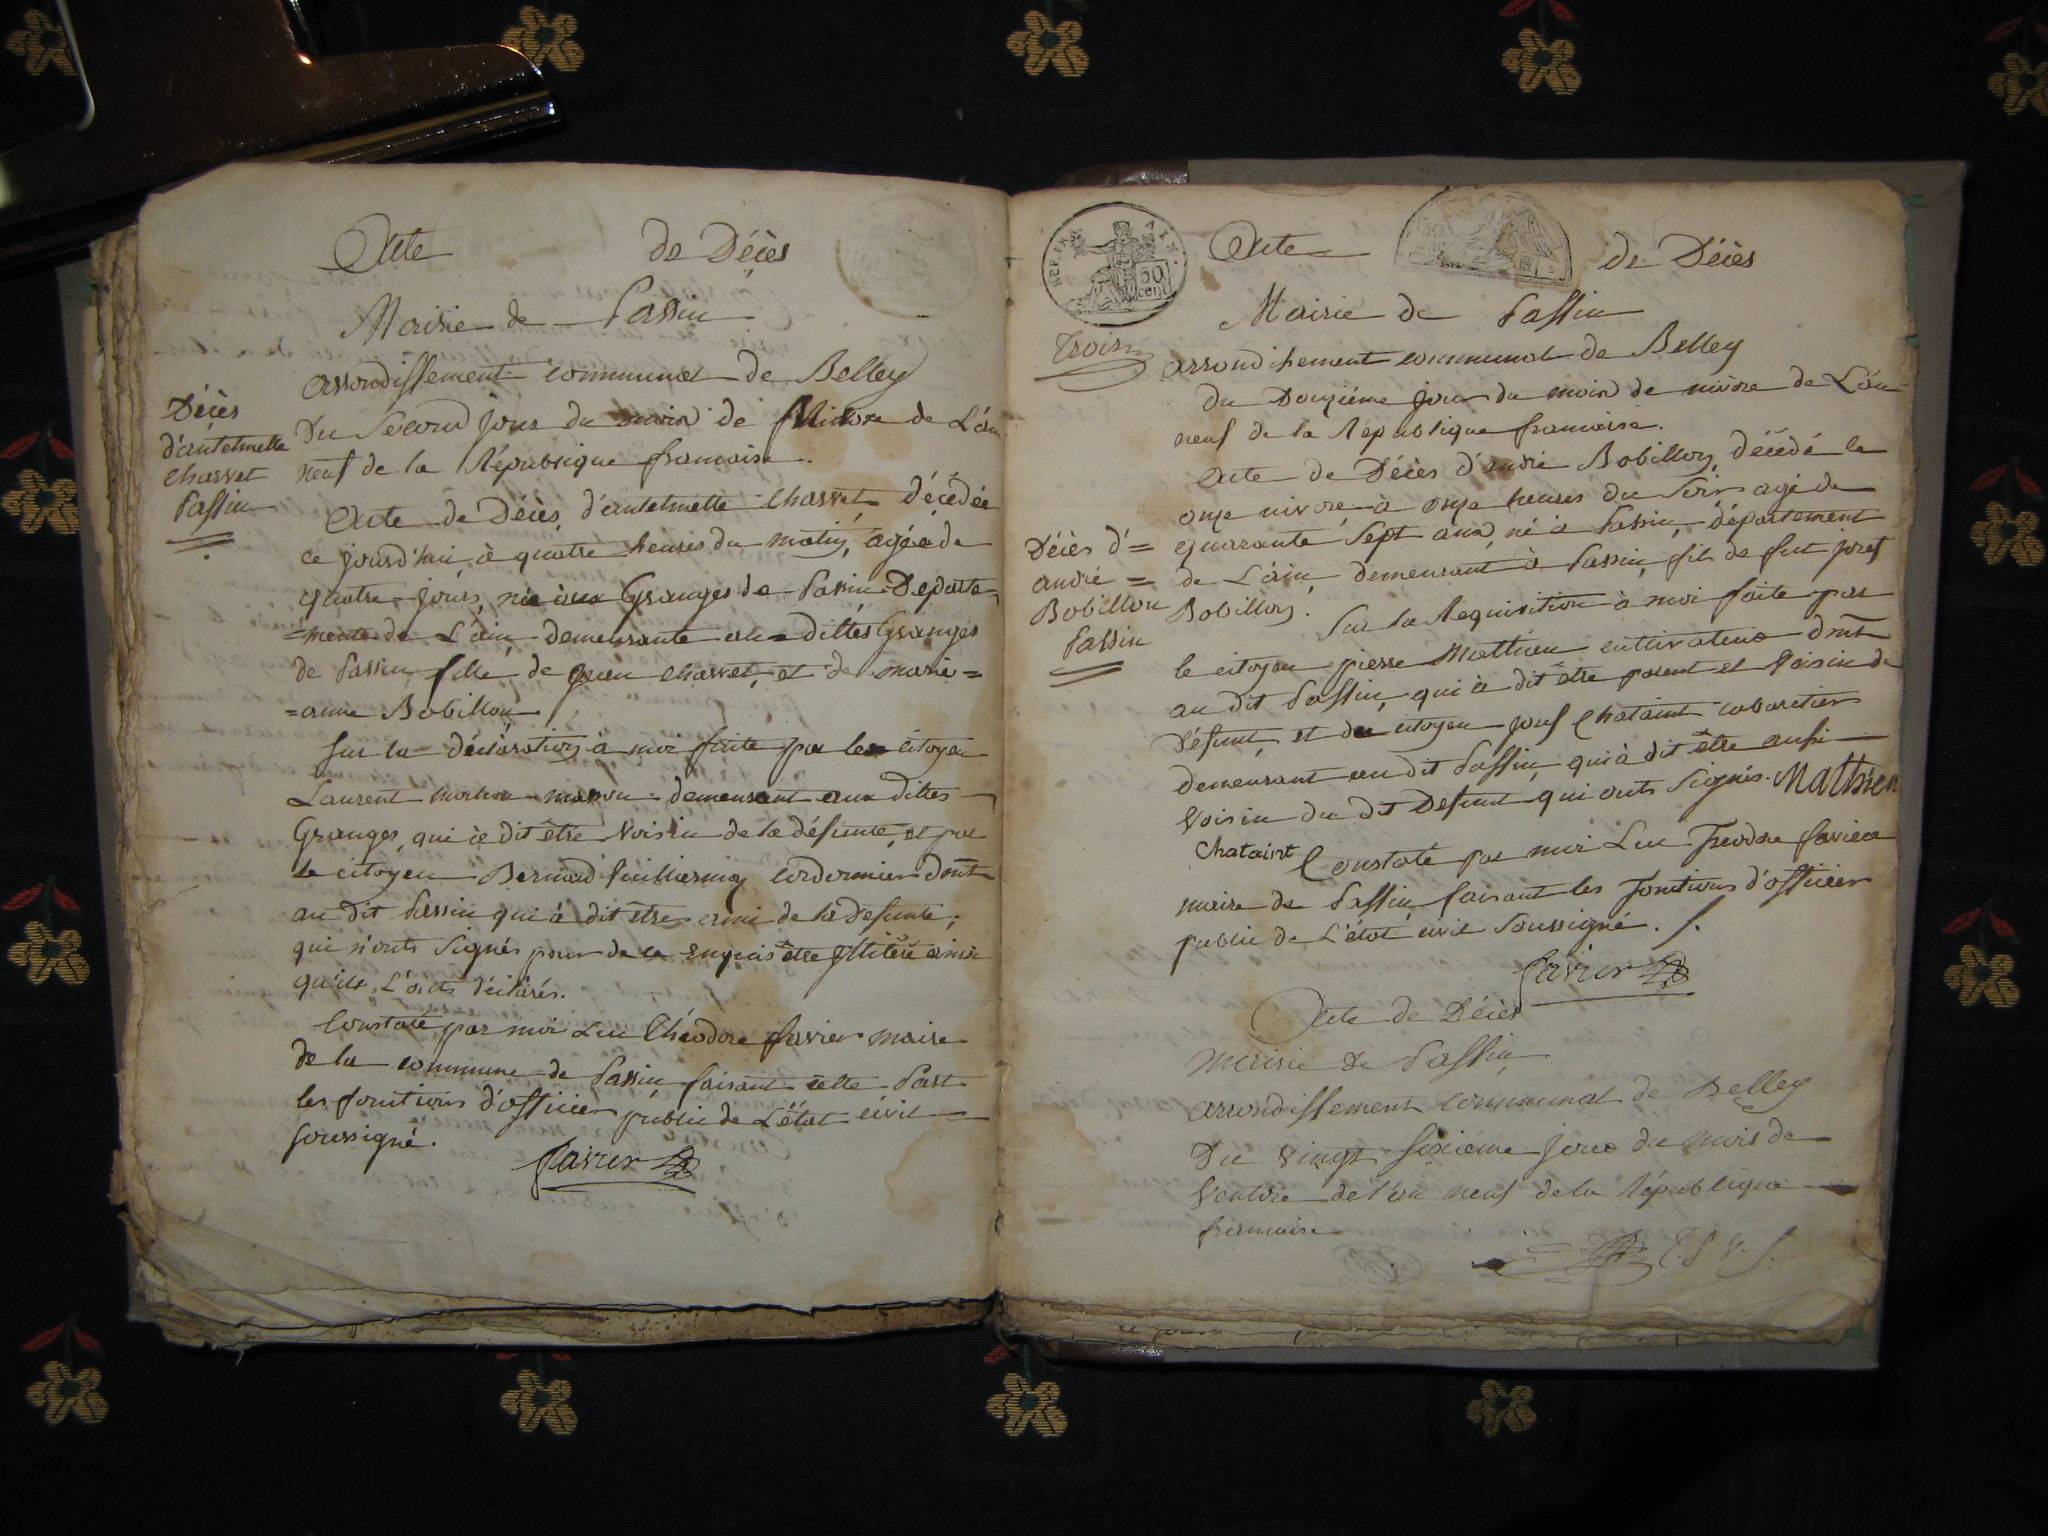 Acte de Décès
Mairie de Passin
arrondissement communal de Belley
Du Second jour du mois de Nivose de L'an
neuf de la République francaise.
Décès
d'antelmette
Charvet
Passin
Acte de Décès, d'antelmette Charvet, décédée
ce jourd'hui à quatre heures du matin, agée de
quatre jours, née aux Granges de Passin Departe=
=ment de L'ain, demeurante aux dittes Granges
de Passin, fille de jean Charvet, et de marie=
=anne Bobillon
Sur la déclaration à moi faite par le citoyen
Laurent maçon demeurant aux dittes
Granges, qui à dit être Voisin de la défunte, et par
le citoyen Bernard Vuilliermoz Cordonnier dmt
au dit Passin qui à dit être ami de la defunte,
qui n'onts Signés pour de ce enquis être illitéré ainsi
qu'ils L'onts déclarés.
Constaté par moi Luc Théodore favier maire
de la commune de Passin faisant cette Part
les fonctions d'officier public de L'état civil
soussigné.
favier
REP. FRA. AIN.
50 cen
Trois
Acte de Décès
Mairie de Passin
arrondissement communal de Belley
du Douziéme jour du mois de nivôse de L'an
neuf de la République francaise.
Décès d'=
andré =
Bobillon
Passin
Acte de Décès d'andré Bobillon, décédé le
onze nivose à onze heures du Soir agé de
quarante Sept ans, né à Passin, département
de L'ain, demeurant à Passin, fils de feu josef
Bobillon.
Sur la Requisition à moi faite par
le citoyen pierre Mathieu cultivateur dmt
au dit Passin, qui à dit être parent et Voisin du
défunt, et du citoyen josef Chataint cabaretier
demeurant au dit Passin, qui à dit être aussi
Voisin du dit Defunt qui onts Signés. Mathieu
Chataint Constaté par moi Luc Theodore favier
maire de Passin faisant les fonctions d'officier
public de L'état civil Soussigné.
favier
Acte de Décès
Mairie de Passin
arrondissement communal de Belley
Du vingt sixiéme jour du mois de
Ventose de l'an neuf de la République
francaise
T. S. V. P.